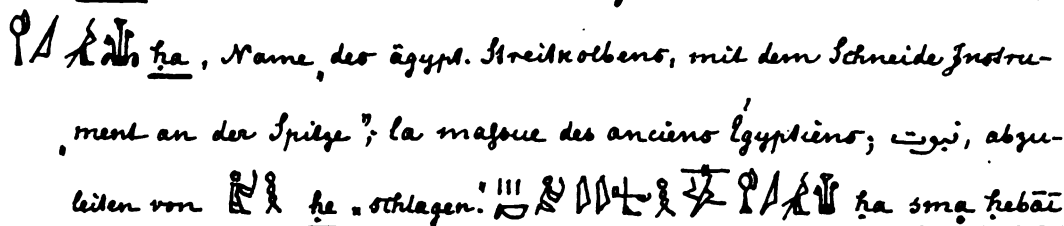 ḥa, Name „des ägypt. Streitkolbens, mit dem Schneide Instru-
„ment an der Spitze“; la massue des anciens Égyptiens; نبوت, abzu-
leiten von ḥe „schlagen.“ ḥa smạ ḥebāī